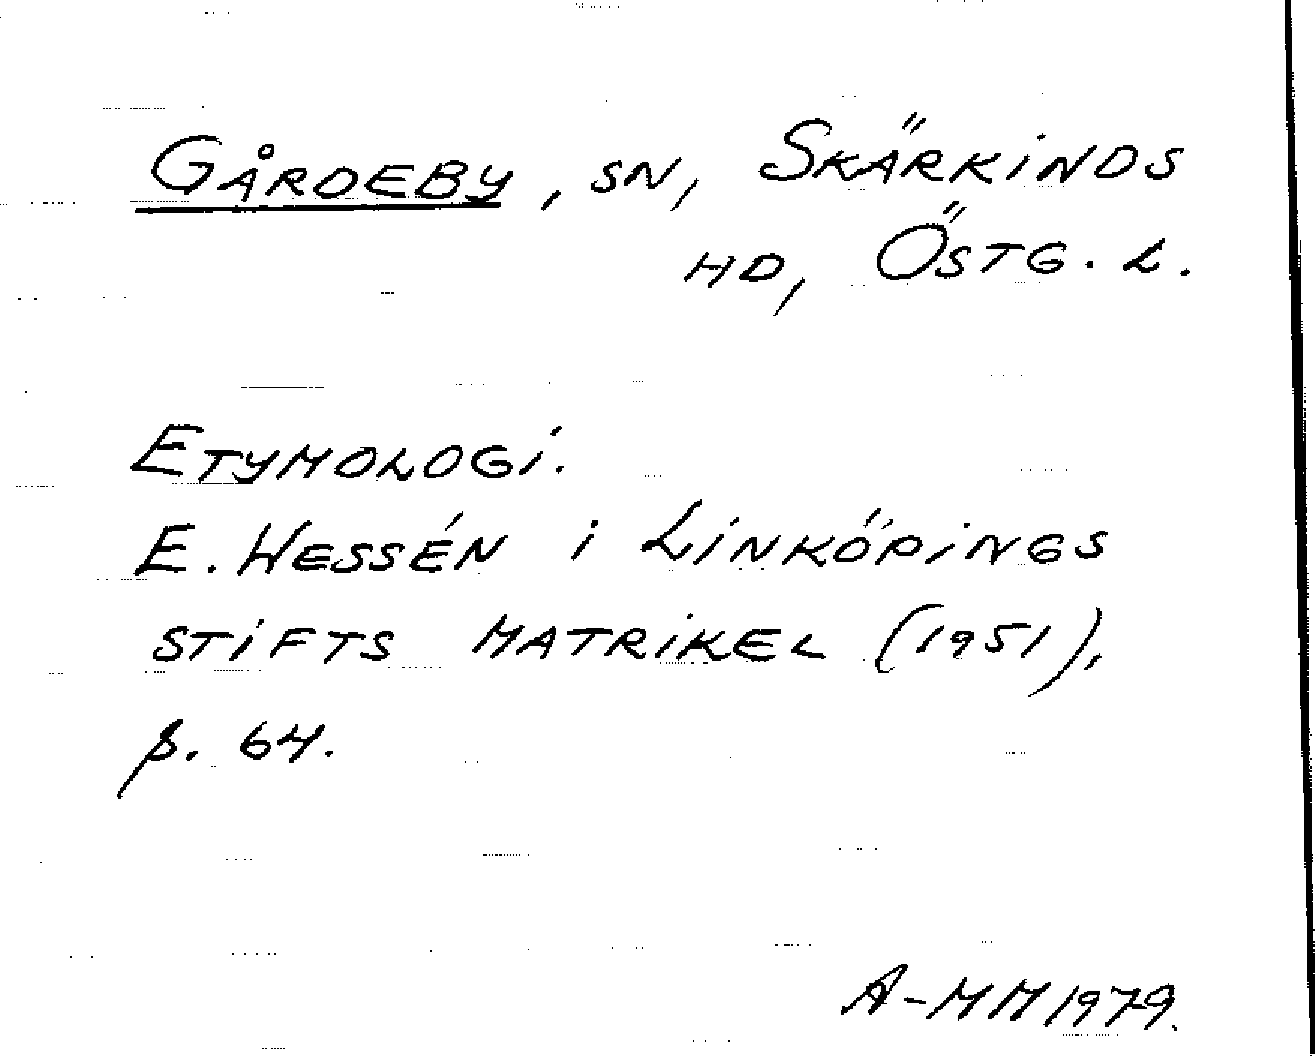 GÅRDEBY, SN, SKÄRKINDS
HD, ÖSTG. L.
ETYMOLOGI.
E. WESSÉN I LINKÖPINGS
STIFTS MATRIKEL (1951),
p. 64.
A-MM 1979.